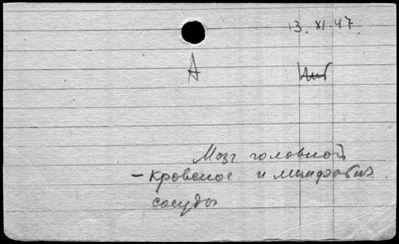 13. XI. 47.
А
Мозг головной
- кровенос. и лимфатич.
сосуды